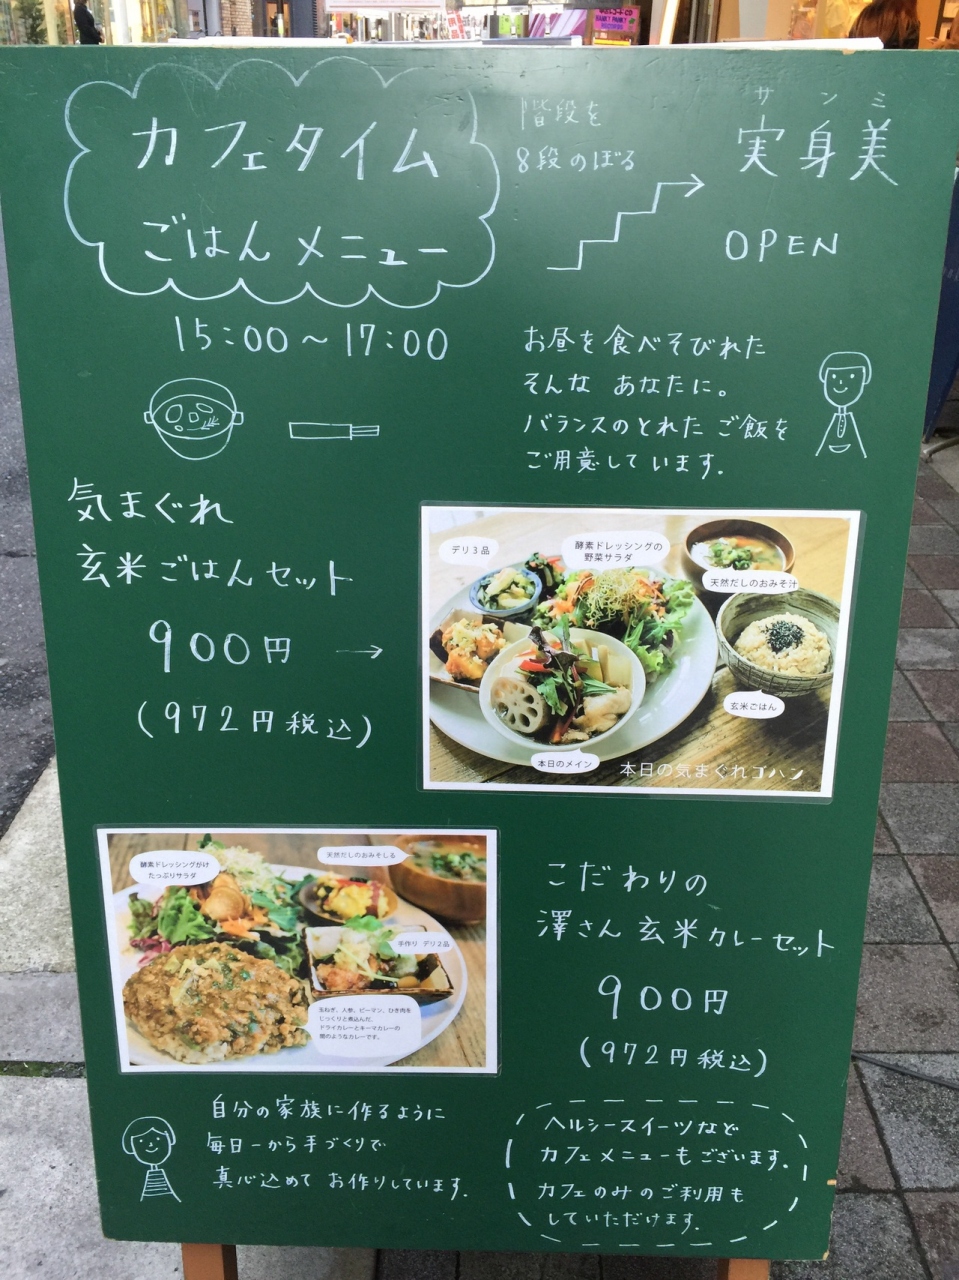 カフェタイム
ごはんメニュー
15:00〜17:00
階段を
8段のぼる
サンミ
実身美
OPEN
お昼を食べそびれた
そんな あなたに。
バランスのとれた ご飯を
ご用意しています。
気まぐれ
玄米ごはんセット
900円 →
(972円税込)
デリ3品
酵素ドレッシングの
野菜サラダ
天然だしのおみそ汁
玄米ごはん
本日のメイン
本日の気まぐれゴハン
酵素ドレッシングがけ
たっぷりサラダ
天然だしのおみそしる
手作り デリ2品
玉ねぎ、人参、ピーマン、ひき肉を
じっくりと煮込んだ、
ドライカレーとキーマカレーの
間のようなカレーです。
こだわりの
澤さん玄米カレーセット
900円
(972円税込)
自分の家族に作るように
毎日一から手づくりで
真心込めて お作りしています。
ヘルシースイーツなど
カフェメニューもございます。
カフェのみのご利用も
していただけます。